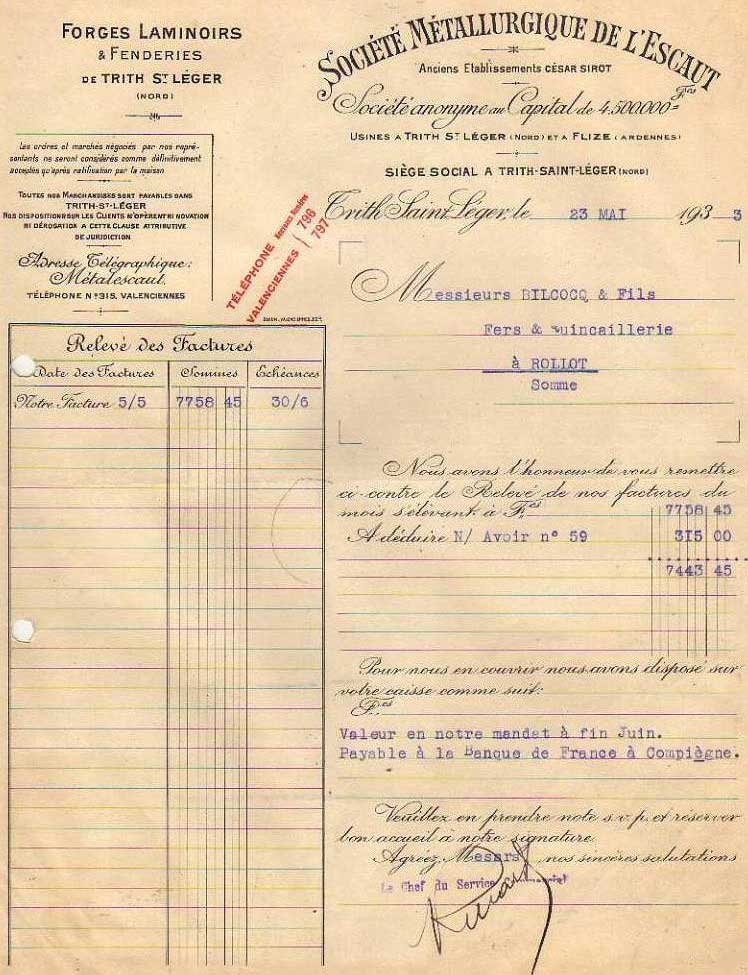 FORGES LAMINOIRS
& FENDERIES
DE TRITH ST LÉGER
(NORD)
Les ordres et marchés négociés par nos repré-
sentants ne seront considérés comme définitivement
acceptés qu'après ratification par la maison
TOUTES NOS MARCHANDISES SONT PAYABLES DANS
TRITH-ST-LÉGER
NOS DISPOSITIONS SUR LES CLIENTS N'OPÈRENT NI NOVATION
NI DÉROGATION A CETTE CLAUSE ATTRIBUTIVE
DE JURIDICTION
Adresse Télégraphique:
Métalescaut.
TÉLÉPHONE N° 315, VALENCIENNES
TÉLÉPHONE
VALENCIENNES
796
797
SOCIÉTÉ MÉTALLURGIQUE DE L'ESCAUT
Anciens Etablissements CÉSAR SIROT
Société anonyme au Capital de 4.500.000 Fcs
USINES A TRITH ST LÉGER (NORD) ET A FLIZE (ARDENNES)
SIÈGE SOCIAL A TRITH-SAINT-LÉGER (NORD)
Trith Saint Léger, le 23 MAI 1933
Messieurs BILCOCQ & Fils
Fers & Quincaillerie
à ROLLOT
Somme
Relevé des Factures
Date des Factures Sommes Echéances
Notre Facture 5/5 7758 45 30/6
Nous avons l'honneur de vous remettre
ci-contre le Relevé de nos factures du
mois s'élevant à Fcs 7758 45
A déduire N/ Avoir n° 59 315 00
7443 45
Pour nous en couvrir nous avons disposé sur
votre caisse comme suit:
Fcs
Valeur en notre mandat à fin Juin.
Payable à la Banque de France à Compiègne.
Veuillez en prendre note s.v.p. et réserver
bon accueil à notre signature.
Agréez, Messrs, nos sincères salutations
Le Chef du Service